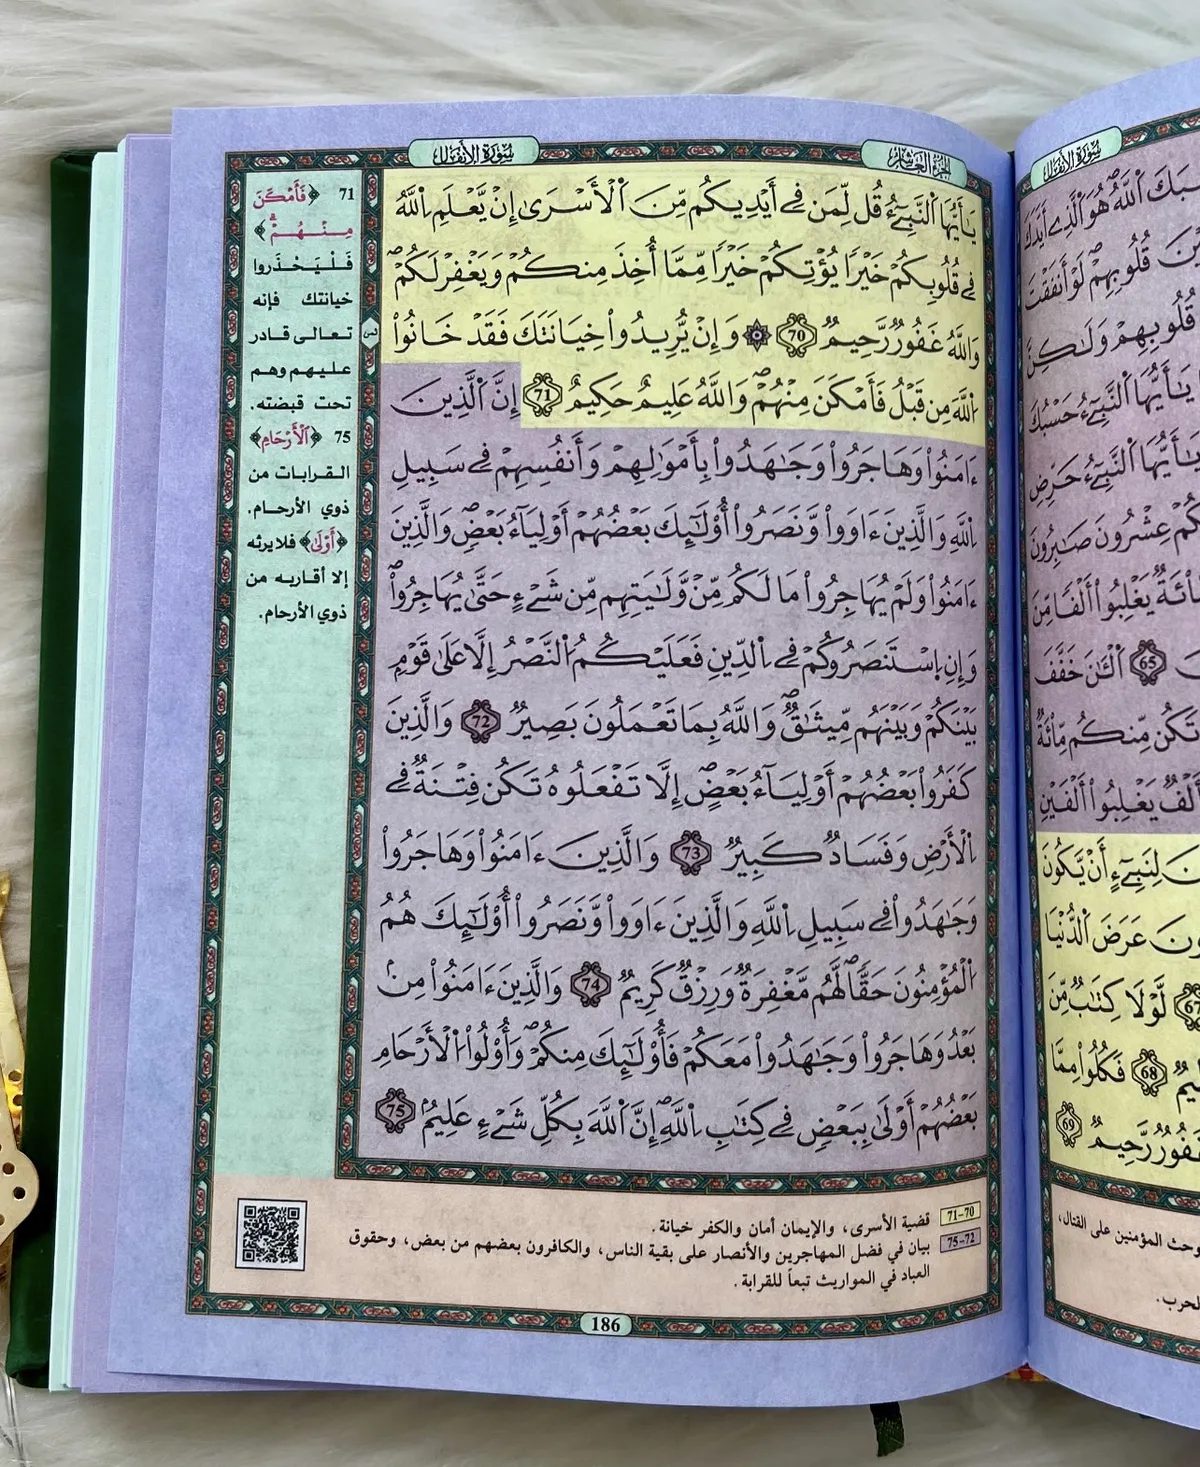 سُورَةُ الأَنفَال
الجزء العاشر
يَٰٓأَيُّهَا اَ۬لنَّبِيٓءُ قُل لِّمَن فِےٓ أَيْدِيكُم مِّنَ اَ۬لْأَسْرَىٰٓ إِنْ يَّعْلَمِ اِ۬للَّهُ
فِے قُلُوبِكُمْ خَيْراٗ يُؤْتِكُمْ خَيْراٗ مِّمَّآ أُخِذَ مِنكُمْ وَيَغْفِرْ لَكُمْۖ
وَاللَّهُ غَفُورٞ رَّحِيمٞ 70 ۞ وَإِنْ يُّرِيدُواْ خِيَانَتَكَ فَقَدْ خَانُواْ
اُ۬للَّهَ مِن قَبْلُ فَأَمْكَنَ مِنْهُمْۖ وَاللَّهُ عَلِيمٌ حَكِيمٌ 71 إِنَّ اَ۬لَّذِينَ
ءَامَنُواْ وَهَاجَرُواْ وَجَٰهَدُواْ بِأَمْوَٰلِهِمْ وَأَنفُسِهِمْ فِے سَبِيلِ
اِ۬للَّهِ وَالَّذِينَ ءَاوَواْ وَّنَصَرُوٓاْ أُوْلَٰٓئِكَ بَعْضُهُمْ أَوْلِيَآءُ بَعْضٖۖ وَالَّذِينَ
ءَامَنُواْ وَلَمْ يُهَاجِرُواْ مَا لَكُم مِّنْ وَّلَٰيَتِهِم مِّن شَےْءٍ حَتَّىٰ يُهَاجِرُواْۖ
وَإِنِ اِ۪سْتَنصَرُوكُمْ فِے اِ۬لدِّينِ فَعَلَيْكُمُ اُ۬لنَّصْرُ إِلَّا عَلَىٰ قَوْمِۭ
بَيْنَكُمْ وَبَيْنَهُم مِّيثَٰقٞۖ وَاللَّهُ بِمَا تَعْمَلُونَ بَصِيرٞ 72 وَالَّذِينَ
كَفَرُواْ بَعْضُهُمْ أَوْلِيَآءُ بَعْضٍۖ إِلَّا تَفْعَلُوهُ تَكُن فِتْنَةٞ فِے
اِ۬لْأَرْضِ وَفَسَادٞ كَبِيرٞ 73 وَالَّذِينَ ءَامَنُواْ وَهَاجَرُواْ
وَجَٰهَدُواْ فِے سَبِيلِ اِ۬للَّهِ وَالَّذِينَ ءَاوَواْ وَّنَصَرُوٓاْ أُوْلَٰٓئِكَ هُمُ
اُ۬لْمُؤْمِنُونَ حَقّاٗۖ لَّهُم مَّغْفِرَةٞ وَرِزْقٞ كَرِيمٞ 74 وَالَّذِينَ ءَامَنُواْ مِنۢ
بَعْدُ وَهَاجَرُواْ وَجَٰهَدُواْ مَعَكُمْ فَأُوْلَٰٓئِكَ مِنكُمْۖ وَأُوْلُواْ اُ۬لْأَرْحَامِ
بَعْضُهُمْ أَوْلَىٰ بِبَعْضٖ فِے كِتَٰبِ اِ۬للَّهِۖ إِنَّ اَ۬للَّهَ بِكُلِّ شَےْءٍ عَلِيمٌۢ 75
71 ﴿فَأَمْكَنَ
مِنْهُمْۖ﴾
فَلْيَحْذَروا
خيانتك فإنه
تعالى قادر
عليهم وهم
تحت قبضته.
75 ﴿اَ۬لْأَرْحَامِ﴾
القرابات من
ذوي الأرحام.
﴿أَوْلَىٰ﴾ فلا يرثه
إلا أقاربه من
ذوي الأرحام.
ثمن
70-71 قضية الأسرى، والإيمان أمان والكفر خيانة.
72-75 بيان في فضل المهاجرين والأنصار على بقية الناس، والكافرون بعضهم من بعض، وحقوق
العباد في المواريث تبعاً للقرابة.
186
سُورَةُ الأَنفَال
اَ۬للَّهُۖ هُوَ اَ۬لَّذِےٓ أَيَّدَكَ
قُلُوبِهِمْۖ لَوْ أَنفَقْتَ
قُلُوبِهِمْ وَلَٰكِنَّ
يَٰٓأَيُّهَا اَ۬لنَّبِيٓءُ حَسْبُكَ
يَٰٓأَيُّهَا اَ۬لنَّبِيٓءُ حَرِّضِ
عِشْرُونَ صَٰبِرُونَ
يَغْلِبُوٓاْ أَلْفاٗ مِّنَ
65 اَ۬لْـَٰٔنَ خَفَّفَ
تَكُن مِّنكُم مِّاْئَةٞ
أَلْفٞ يَغْلِبُوٓاْ أَلْفَيْنِ
لِنَبِيٓءٍ أَنْ يَّكُونَ
عَرَضَ اَ۬لدُّنْيَا
67 لَّوْلَا كِتَٰبٞ مِّنَ
68 فَكُلُواْ مِمَّا
غَفُورٞ رَّحِيمٞ 69
وحث المؤمنين على القتال،
الحرب.